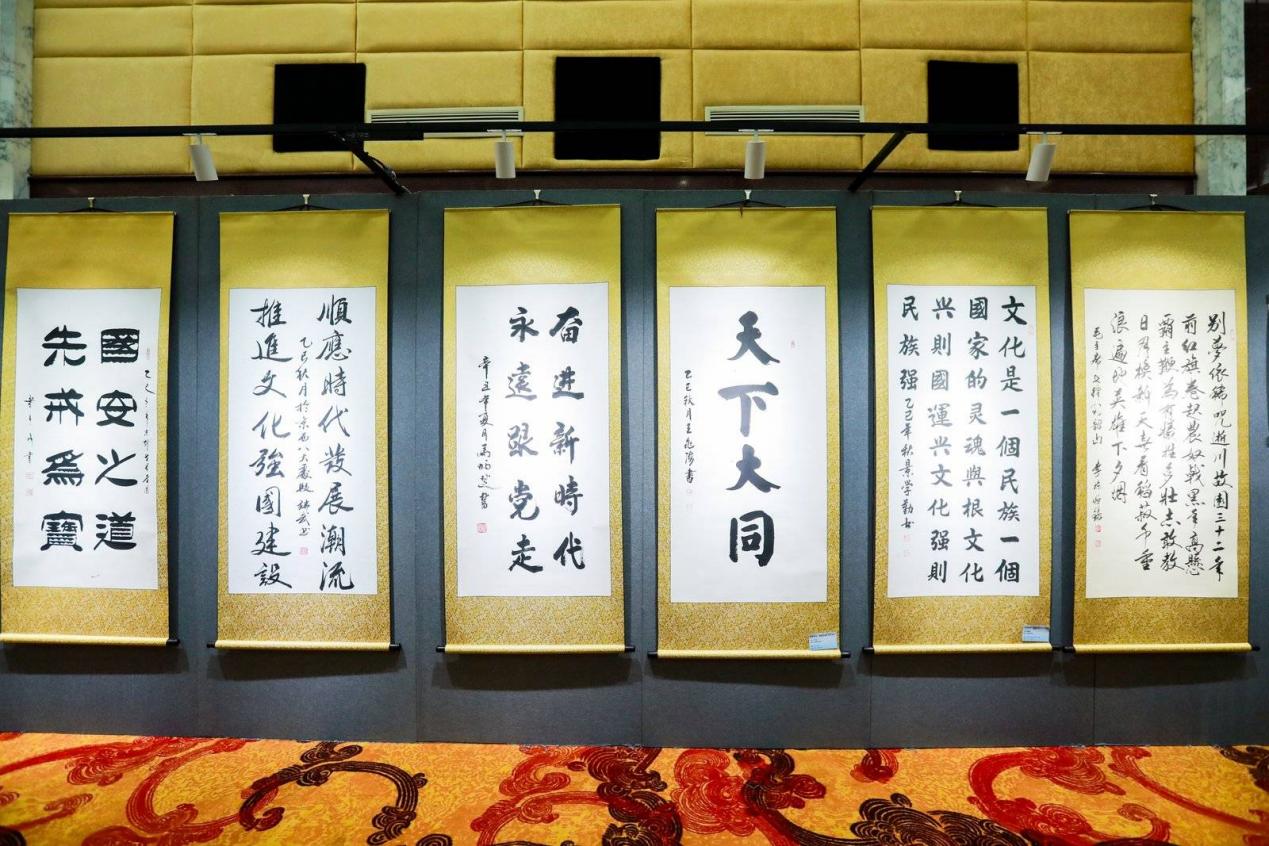 别夢依稀咒逝川故園三十二年
前红旗卷起農奴戟黑手高懸
霸主鞭為有犧牲多壮志敢教
日月換新天喜看稻菽千重
浪遍地英雄下夕烟
毛主席七律到韶山
文化是一個民族一個
國家的灵魂與根文化
兴則國運兴文化强則
民族强 乙巳年秋景学勤书
天下大同
乙巳秋月王書
奋进新時代
永遠跟党走
辛丑年夏月馬書
順應時代發展潮流
乙巳秋月於京西八大處
推進文化強國建設
國安之道
先戒爲寶